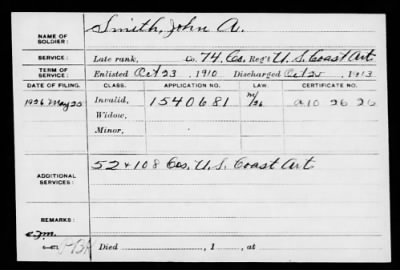 NAME OF SOLDIER: Smith, John A.
SERVICE: Late rank, Co. 74. Co. Reg't U. S. Coast Art
TERM OF SERVICE: Enlisted Oct 23, 1910 Discharged Oct 25, 1913
DATE OF FILING. CLASS. APPLICATION NO. LAW. CERTIFICATE NO.
1926 May 25 Invalid, 1540681 a10 26 26
Widow,
Minor,
ADDITIONAL SERVICES: 52 + 108 Cos. U. S. Coast Art
REMARKS:
Died , 1 , at